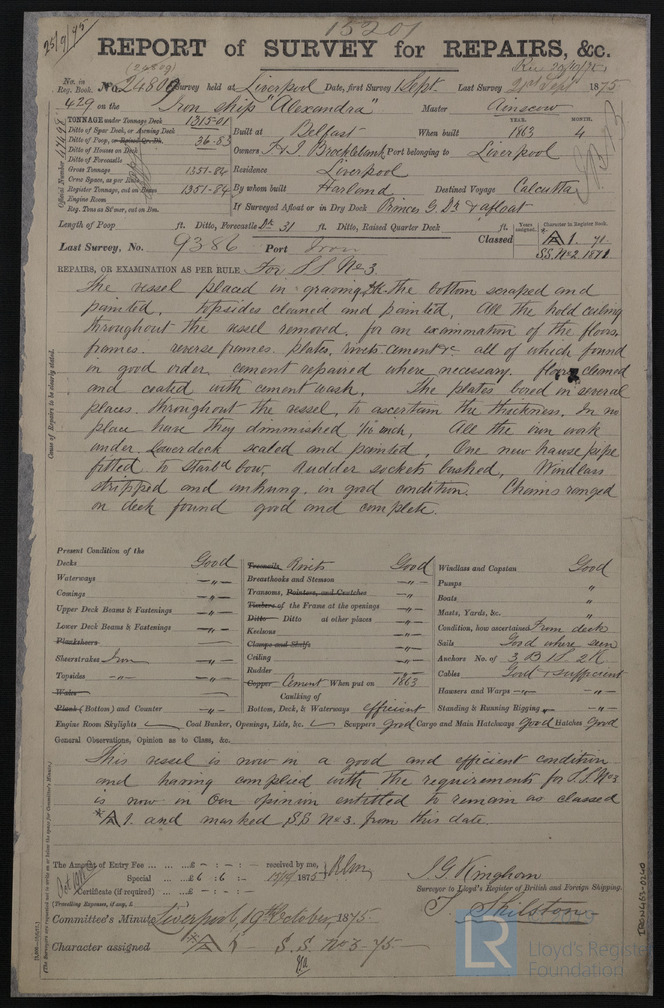 25/9/75
15201
REPORT of SURVEY for REPAIRS, &c.
(24809)
Rec 20/10/75
No. in Reg. Book. No. 24800 Survey held at Liverpool Date, first Survey 1 Sept. Last Survey 21st Sept 1875
429 on the Iron ship "Alexandra" Master Ainscow
TONNAGE under Tonnage Deck 1315·01
Ditto of Spar Deck, or Awning Deck
Ditto of Poop, or Raised Qr. Dk. 36·83
Ditto of Houses on Deck
Ditto of Forecastle
Gross Tonnage 1351·84
Crew Space, as per Rule
Register Tonnage, cut on Beam 1351·84
Engine Room
Reg. Tons as St'mer, cut on Bm.
Official Number
YEAR. MONTH.
Built at Belfast When built 1863 4
Owners T & J. Brocklebank Port belonging to Liverpool
Residence Liverpool
By whom built Harland Destined Voyage Calcutta
If Surveyed Afloat or in Dry Dock Princes G. Dk & afloat
Length of Poop ft. Ditto, Forecastle Dk 31 ft. Ditto, Raised Quarter Deck ft.
Years assigned. Character in Register Book.
Last Survey, No. 9386 Port Iron Classed A 1. 71
S.S. No 2 1871
REPAIRS, OR EXAMINATION AS PER RULE, For S.S No 3
Cause of Repairs to be clearly stated.
The vessel placed in graving dk. the bottom scraped and
painted, topsides cleaned and painted, All the hold ceiling
throughout the vessel removed, for an examination of the floors,
frames. reverse frames. plates, rivets. cement &c. all of which found
in good order. cement repaired where necessary. floors cleaned
and coated with cement wash, The plates bored in several
places. throughout the vessel, to ascertain the thickness. In no
place have they diminished 1/16 inch, All the iron work
under Lower deck scaled and painted, One new hause pipe
fitted to Starbd bow, Rudder sockets bushed, Windlass
stripped and unhung. in good condition. Chains ranged
on deck found good and complete.
Present Condition of the
Decks Good
Waterways –"–
Comings –"–
Upper Deck Beams & Fastenings –"–
Lower Deck Beams & Fastenings –"–
Planksheers
Sheerstrakes Iron –"–
Topsides –"– –"–
Wales
Plank (Bottom) and Counter –"–
Treenails Rivets Good
Breasthooks and Stemson –"–
Transoms, Pointers, and Crutches –"–
Timbers of the Frame at the openings –"–
Ditto Ditto at other places –"–
Keelsons –"–
Clamps and Shelfs
Ceiling –"–
Rudder –"–
Copper Cement When put on 1863
Caulking of
Bottom, Deck, & Waterways efficient
Windlass and Capstan Good
Pumps "
Boats "
Masts, Yards, &c. "
Condition, how ascertained From deck
Sails Good where seen
Anchors No. of 3 B 1 S. 2 K.
Cables Good & sufficient
Hawsers and Warps –"– –"–
Standing & Running Rigging –"– –"–
Engine Room Skylights Coal Bunker, Openings, Lids, &c. Scuppers good Cargo and Main Hatchways Good Hatches Good
General Observations, Opinion as to Class, &c.
This vessel is now in a good and efficient condition
and having complied with the requirements for S.S. No 3
is now in our opinion entitled to remain as classed
A 1. and marked S.S No 3. from this date.
The Amount of Entry Fee ... ... ...£ – : – : – received by me,
Special ... ... ...£6 : 6 : – 1875
Certificate (if required) ... ...£ – : – : –
(Travelling Expenses, if any, £ )
J. G. Kingham
Surveyor to Lloyd's Register of British and Foreign Shipping.
T. Skilston
Committee's Minute Liverpool, 19th October, 1875.
Character assigned A 1 – S. S. No 3–75–
© 2019
LR
Lloyd's Register
Foundation
IRON453-0260